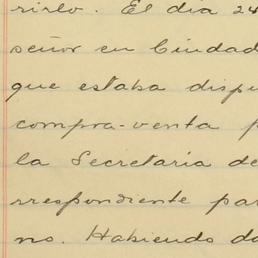 rirlo. El día 24
señor en Ciudad
que estaba dispu
compra-venta p
la Secretaría de
rrespondiente par
no. Habiendo da